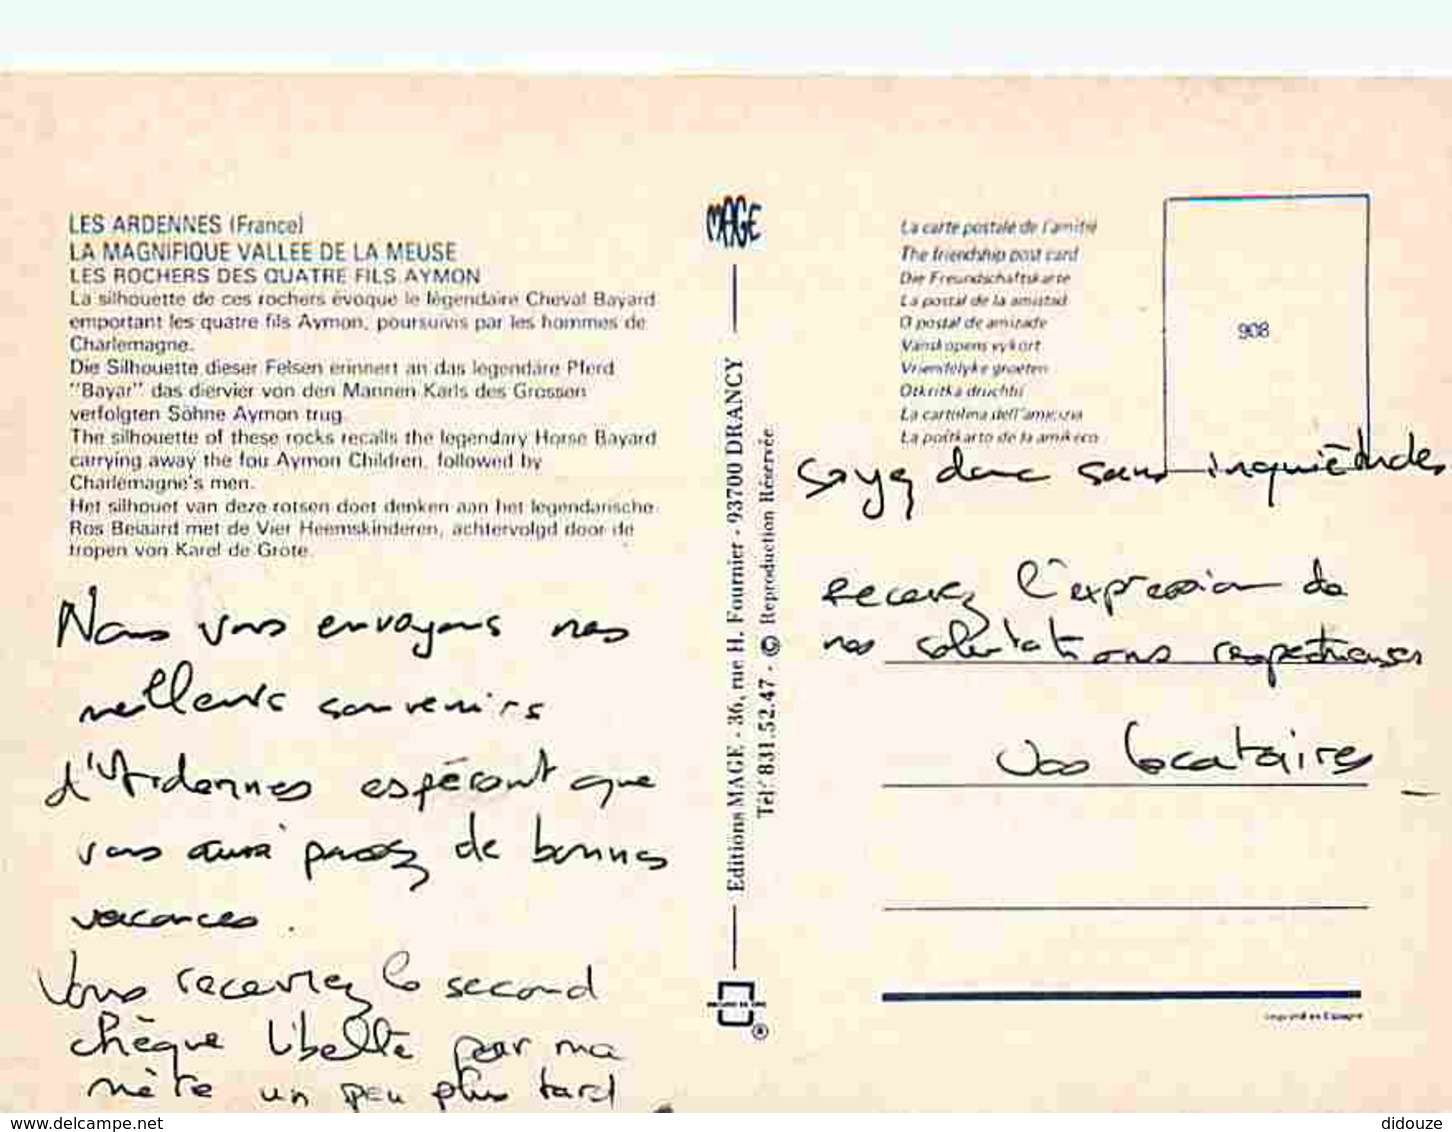 LES ARDENNES (France)
LA MAGNIFIQUE VALLEE DE LA MEUSE
LES ROCHERS DES QUATRE FILS AYMON
La silhouette de ces rochers évoque le légendaire Cheval Bayard
emportant les quatre fils Aymon, poursuivis par les hommes de
Charlemagne.
Die Silhouette dieser Felsen erinnert an das legendäre Pferd
"Bayar" das diervier von den Mannen Karls des Grossen
verfolgten Söhne Aymon trug.
The silhouette of these rocks recalls the legendary Horse Bayard
carrying away the fou Aymon Children, followed by
Charlemagne's men.
Het silhouet van deze rotsen doet denken aan het legendarische
Ros Beiaard met de Vier Heemskinderen, achtervolgd door de
tropen von Karel de Grote.
Nous vous envoyons nos
meilleurs souvenirs
d'Ardennes espérant que
vous aussi passez de bonnes
vacances.
Vous recevrez le second
chèque libellé par ma
mère un peu plus tard
MAGE
Editions MAGE - 36, rue H. Fournier - 93700 DRANCY
Tél. 831.52.47 - © Reproduction Réservée
®
La carte postale de l'amitié
The friendship post card
Die Freundschaftskarte
La postal de la amistad
O postal de amizade
Vänskapens vykort
Vriendelyke groeten
Otkritka druzhbi
La cartolina dell'amicizia
La poŝtkarto de la amikeco
908
soyez donc sans inquiètudes
recevez l'expression de
nos salutations respectueuses
vos locataires
Imprimé en Espagne
www.delcampe.net
didouze